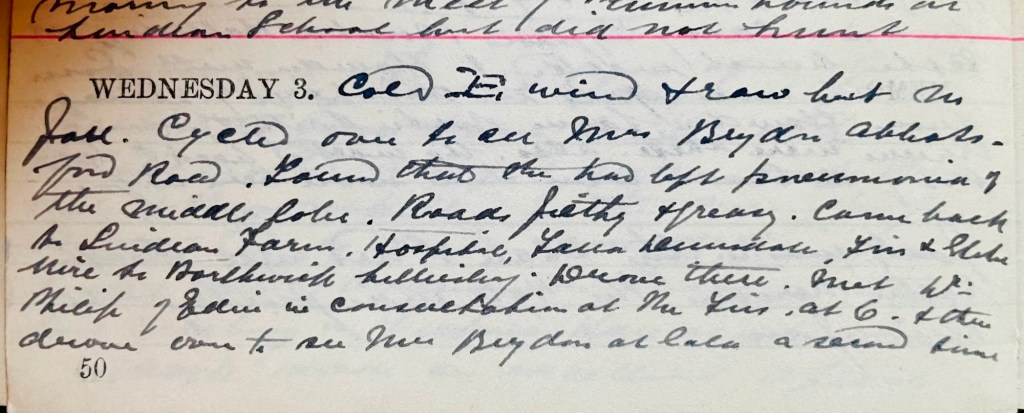 morning to the Meet of hounds at
Lindean School but did not hunt
WEDNESDAY 3. Cold E. wind & raw but no
fall. Cycled over to see Mrs Brydon Abbots-
ford Road. Found that she had left pneumonia of
the middle lobe. Roads filthy & greasy. Came back
to Lindean Farm, Hospital, Firs &
to Borthwick. Drove there. Met Dr.
Philip of Edin in consultation at The Firs. at 6. & then
drove over to see Mrs Brydon at Gala a second time
50